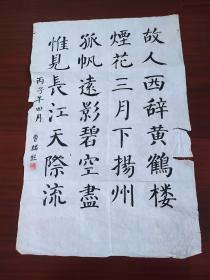 故人西辞黄鶴楼
煙花三月下揚州
孤帆遠影碧空盡
惟見長江天際流
丙子年四月